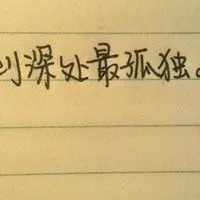 到深处最孤独。